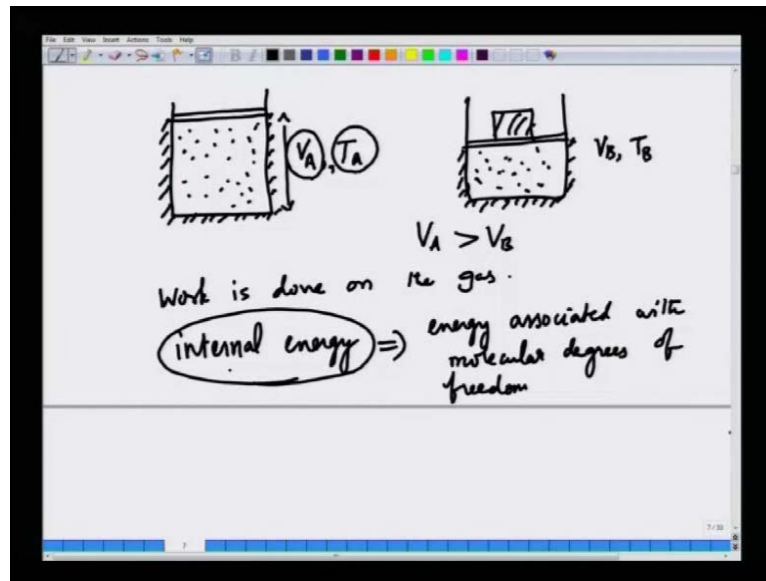 File Edit View Insert Actions Tools Help
V_A, T_A
V_B, T_B
V_A > V_B
Work is done on the gas.
internal energy ⇒ energy associated with
molecular degrees of
freedom
7